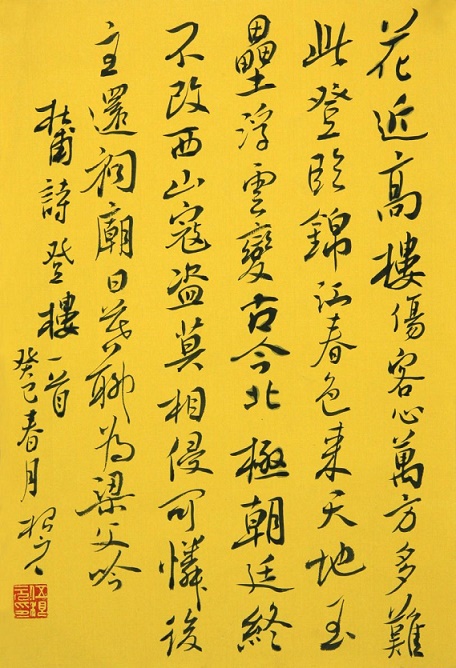 花近高樓傷客心萬方多難
此登臨錦江春色来天地玉
壘浮雲變古今北極朝廷終
不改西山寇盗莫相侵可憐後
主還祠廟日暮聊為梁父吟
杜甫詩登樓一首
癸巳春月